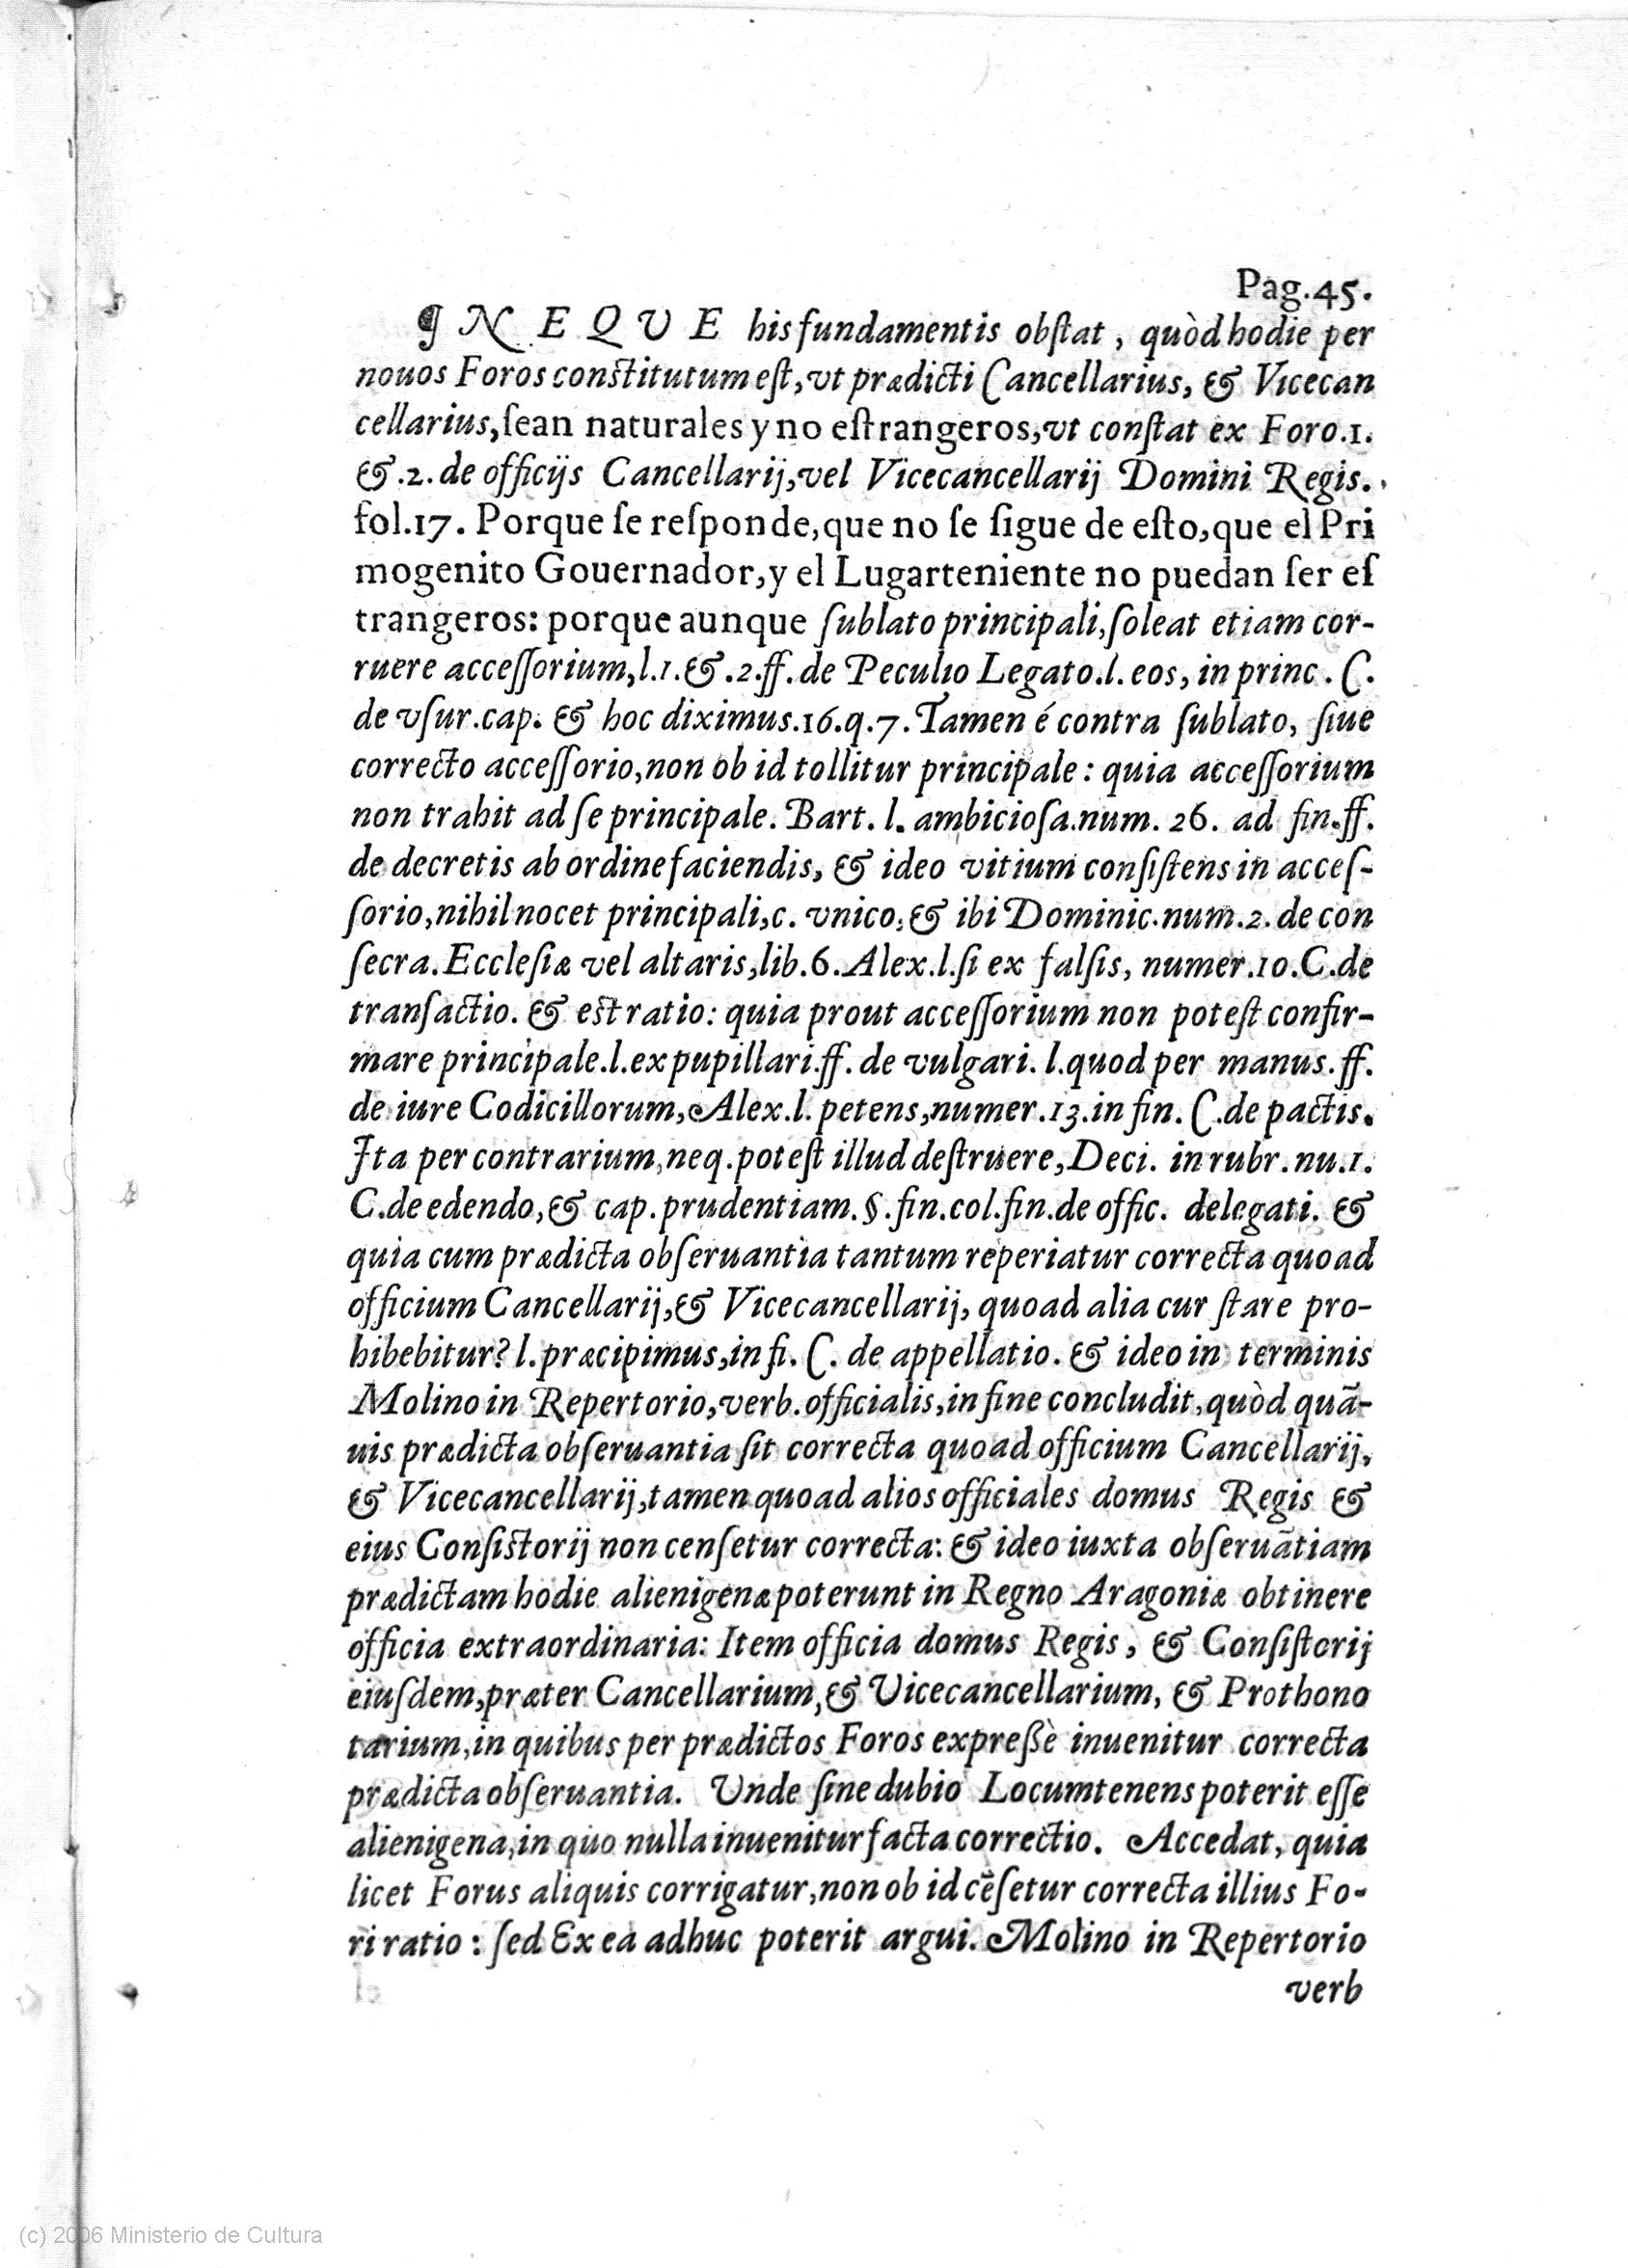 Pag.45.
¶ NEQVE his fundamentis obſtat, quòd hodie per
nouos Foros constitutum eſt, vt prædicti Cancellarius, & Vicecan
cellarius, ſean naturales y no eſtrangeros, vt conſtat ex Foro.1.
&.2. de officijs Cancellarij, vel Vicecancellarij Domini Regis.
fol.17. Porque ſe reſponde, que no ſe ſigue de eſto, que el Pri
mogenito Gouernador, y el Lugarteniente no puedan ſer eſ
trangeros: porque aunque ſublato principali, ſoleat etiam cor-
ruere acceſſorium, l.1.&.2.ff. de Peculio Legato.l. eos, in princ. C.
de vſur.cap. & hoc diximus.16.q.7. Tamen é contra ſublato, ſiue
correcto acceſſorio, non ob id tollitur principale: quia acceſſorium
non trahit ad ſe principale. Bart. l. ambicioſa.num. 26. ad fin.ff.
de decretis ab ordine faciendis, & ideo vitium conſiſtens in acceſ-
ſorio, nihil nocet principali, c. vnico, & ibi Dominic.num.2. de con
ſecra. Eccleſiæ vel altaris, lib.6. Alex.l.ſi ex falſis, numer.10.C.de
tranſactio. & est ratio: quia prout acceſſorium non poteſt confir-
mare principale.l.ex pupillari.ff. de vulgari. l.quod per manus.ff.
de iure Codicillorum, Alex.l. petens, numer.13.in fin. C.de pactis.
Ita per contrarium, neq. poteſt illud deſtruere, Deci. in rubr. nu.1.
C.de edendo, & cap. prudentiam. §. fin.col.fin.de offic. delegati. &
quia cum prædicta obſeruantia tantum reperiatur correcta quoad
officium Cancellarij, & Vicecancellarij, quoad alia cur ſtare pro-
hibebitur? l. præcipimus, in fi. C. de appellatio. & ideo in terminis
Molino in Repertorio, verb. officialis, in fine concludit, quòd quã-
uis prædicta obſeruantia ſit correcta quoad officium Cancellarij,
& Vicecancellarij, tamen quoad alios officiales domus Regis &
eius Conſistorij non cenſetur correcta: & ideo iuxta obſeruãtiam
prædictam hodie alienigenæ poterunt in Regno Aragoniæ obtinere
officia extraordinaria: Item officia domus Regis, & Conſiſtorij
eiuſdem, præter Cancellarium, & Vicecancellarium, & Prothono
tarium, in quibus per prædictos Foros expreßè inuenitur correcta
prædicta obſeruantia. Unde ſine dubio Locumtenens poterit eſſe
alienigena, in quo nulla inuenitur facta correctio. Accedat, quia
licet Forus aliquis corrigatur, non ob id cẽſetur correcta illius Fo-
ri ratio: ſed Ex ea adhuc poterit argui. Molino in Repertorio
verb
(c) 2006 Ministerio de Cultura